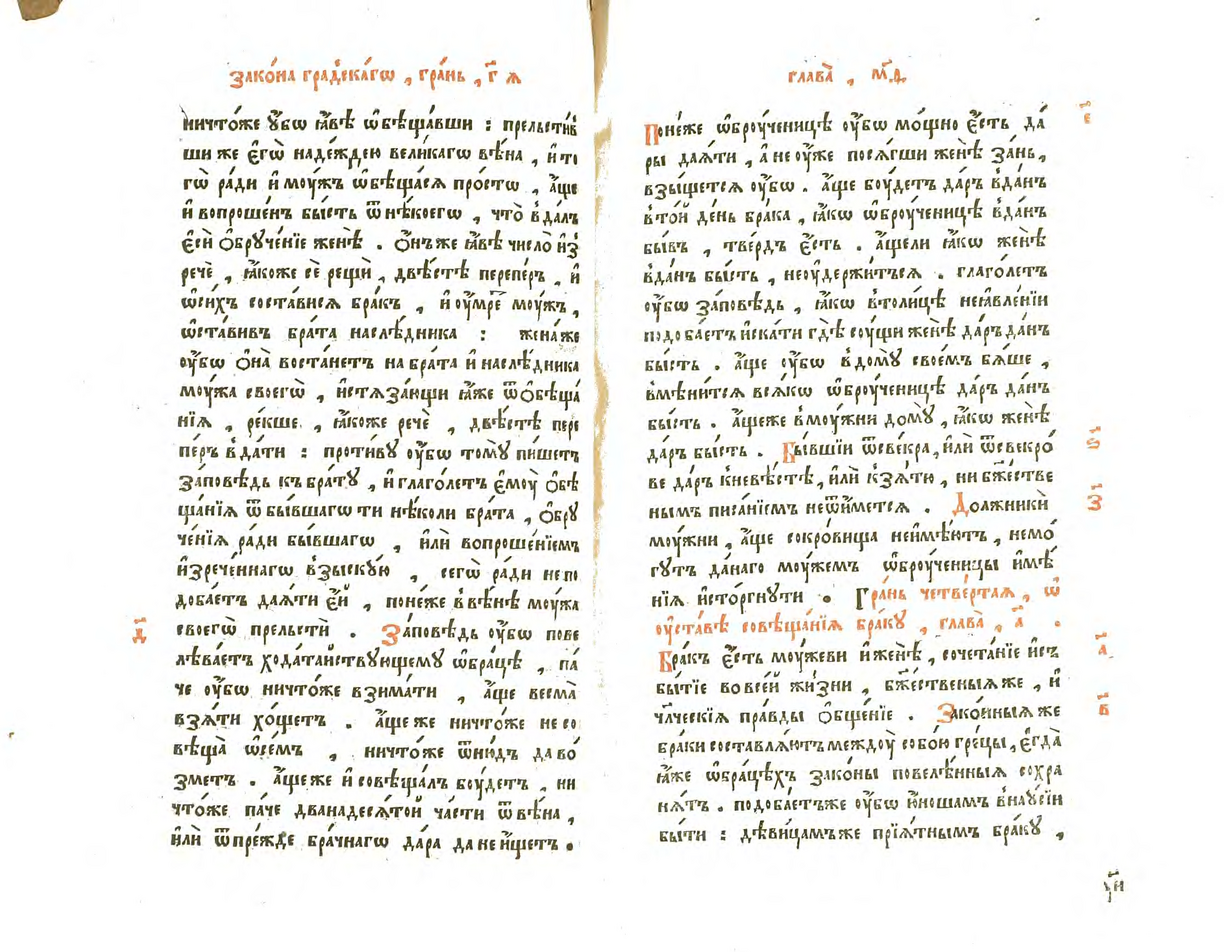 Зако́на гра́дскагѡ , гра́нь , г҃ ѧ
ничто́же ᲂу҆́бѡ ꙗ҆́вѣ ѡ҆бѣща́вши : прельсти́в
ши же є҆го̀ наде́ждею вели́кагѡ вѣ́на , и҆ то
гѡ̀ ра́ди и҆ моу́жъ ѡ҆бѣща́сѧ про́стѡ , а҆́ще
и҆ вопроше́нъ бы́сть ѿ нѣ́коегѡ , что̀ вда́лъ
є҆сѝ ѻ҆бруче́нїе женѣ̀ . Ѻ҆́нъ же ꙗ҆́вѣ число̀ и҆з
речѐ , ꙗ҆́коже сѐ рещѝ , двѣ́стѣ перепе́ръ , и҆
ѡ҆си́хъ соста́висѧ бра́къ , и҆ ᲂу҆́мре моу́жъ ,
ѡ҆ста́вивъ бра́та наслѣ́дника : жена́ же
ᲂу҆́бѡ ѻ҆на̀ воста́нетъ на бра́та и҆ наслѣ́дника
моу́жа своегѡ̀ , и҆стѧза́ющи ꙗ҆́же ѿ ѻ҆бѣща́
нїѧ , ре́кше , ꙗ҆́коже речѐ , двѣ́стѣ пере
пе́ръ вда́ти : проти́ву ᲂу҆́бѡ тому̀ пи́шетъ
за́повѣдь къ бра́ту , и҆ глаго́летъ є҆моу̀ ѻ҆бѣ
ща́нїѧ ѿ бы́вшагѡ ти нѣ́коли бра́та , ѻ҆бру
че́нїѧ ра́ди бы́вшагѡ , и҆лѝ вопроше́нїемъ
и҆зрече́ннагѡ взы́скую , сегѡ̀ ра́ди не по
доба́етъ даѧ́ти є҆́й , поне́же в вѣ́нѣ моу́жа
своегѡ̀ прельстѝ . За́повѣдь ᲂу҆́бѡ пове
д҃
лѣва́етъ хода́тайствующему ѡ҆бра́цѣ , па́
че ᲂу҆́бѡ ничто́же взима́ти , а҆́ще весма̀
взѧ́ти хо́щетъ . а҆́ще же ничто́же не со
вѣща̀ ѡ҆се́мъ , ничто́же ѿню́дъ да во́
зметъ . а҆́ще же и҆ совѣща́лъ боу́детъ , ни
что́же па́че двана́десѧтой ча́сти ѿ вѣ́на ,
и҆лѝ ѿ пре́жде бра́чнагѡ да́ра да не и҆́щетъ .
глава̀ , м҃д
Поне́же ѡ҆броу́ченицѣ ᲂу҆́бѡ мо́щно є҆́сть да́
є҃
ры даѧ́ти , а҆ не ᲂу҆́же посѧ́гши женѣ̀ за́нь ,
взы́щетсѧ ᲂу҆́бѡ . а҆́ще боу́детъ да́ръ вда́нъ
в то́й де́нь бра́ка , ꙗ҆́кѡ ѡ҆броу́ченицѣ вда́нъ
бы́въ , тве́рдъ є҆́сть . а҆́щели ꙗ҆́кѡ женѣ̀
вда́нъ бы́сть , не ᲂу҆держи́тъсѧ . глаго́летъ
ᲂу҆́бѡ за́повѣдь , ꙗ҆́кѡ в толи́цѣ неꙗ҆вле́нїи
подоба́етъ и҆ска́ти гдѣ̀ соу́щи женѣ̀ да́ръ да́нъ
бы́сть . а҆́ще ᲂу҆́бѡ в дому̀ свое́мъ бѧ́ше ,
вмѣни́тсѧ всѧ́кѡ ѡ҆броу́ченицѣ да́ръ да́нъ
бы́сть . а҆́щеже в моу́жни дому̀ , ꙗ҆́кѡ женѣ̀
да́ръ бы́сть . Бы́вшїи ѿ све́кра , и҆лѝ ѿ свекро́
ѕ҃
ве да́ръ к невѣ́стѣ , и҆лѝ к зѧ́тю , ни бж҃е́стве
нымъ писа́нїемъ не ѿи́метсѧ . Должникѝ
з҃
моу́жни , а҆́ще сокро́вища не и҆мѣ́ютъ , немо́
гутъ да́наго моу́жемъ ѡ҆броу́ченицы и҆мѣ́
нїѧ и҆сто́ргнути . Гра́нь четве́ртаѧ , ѡ҆
ᲂу҆ста́вѣ совѣща́нїѧ бра́ку , глава̀ , а҃ .
Бра́къ є҆́сть моу́жеви и҆ женѣ̀ , сочета́нїе и҆съ
а҃
бы́тїе во все́й жи́зни , бж҃е́ственыѧ же , и҆
чл҃ческїѧ пра́вды ѻ҆бще́нїе . Зако́нныѧ же
в҃
бра́ки составлѧ́ютъ междоу̀ собо́ю гре́цы , є҆гда̀
ꙗ҆́же ѡ҆бра́цѣхъ зако́ны повелѣ́нныѧ сохра
нѧ́тъ . подоба́етъже ᲂу҆́бѡ ю҆́ношамъ в наусїи
бы́ти : дѣви́цамъ же прїѧ́тнымъ бра́ку ,
ѱ҃и